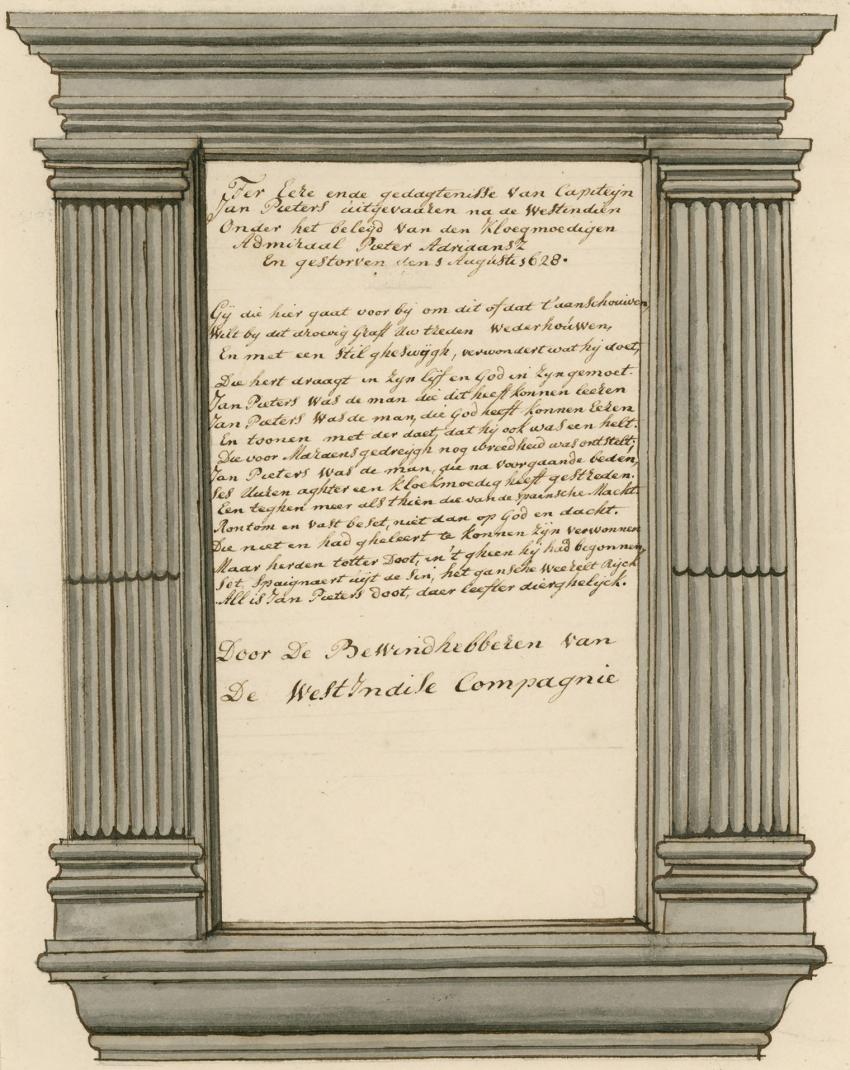 Ter Eere ende gedagtenisse van Capiteyn
Jan Pieters uitgevaaren na de Westindien
Onder het beleyd van den Kloegmoedigen
Admiraal Pieter Adriaansz
En gestorven den 1 Augusti 1628.
Gij die hier gaat voor bij om dit of dat t'aenschouwen,
Wilt by dit droevig Graff Uw treden wederhouwen,
En met een stil gheswijgh, verwondert wat hij doet,
Die hert draagt in zyn lijf en God in zyn gemoet.
Jan Pieters was de man die dit heeft konnen leeren
Jan Pieters was de man, die God heeft konnen Eeren
En toonen met der daet, dat hij ook was een helt.
Die voor Maraens gedreygh nog wreedheid was ontstelt;
Jan Pieters was de man, die na voorgaande beden,
ses Uuren aghter een kloekmoedig heeft gestreden.
Een teghen meer als thien die van de spainsche Macht.
Rontom en vast beset, niet dan op God en dacht.
Die niet en had gheleert te konnen zyn verwonnen
Maar herden totter Doot, in 't gheen hij had begonnen,
Set, Spaignaert uijt de sin, het gansche Weerelt Ryck
All is Jan Pieters doot, daer leefter dierghelijck.
Door De Bewindhebberen van
De WestIndise Compagnie